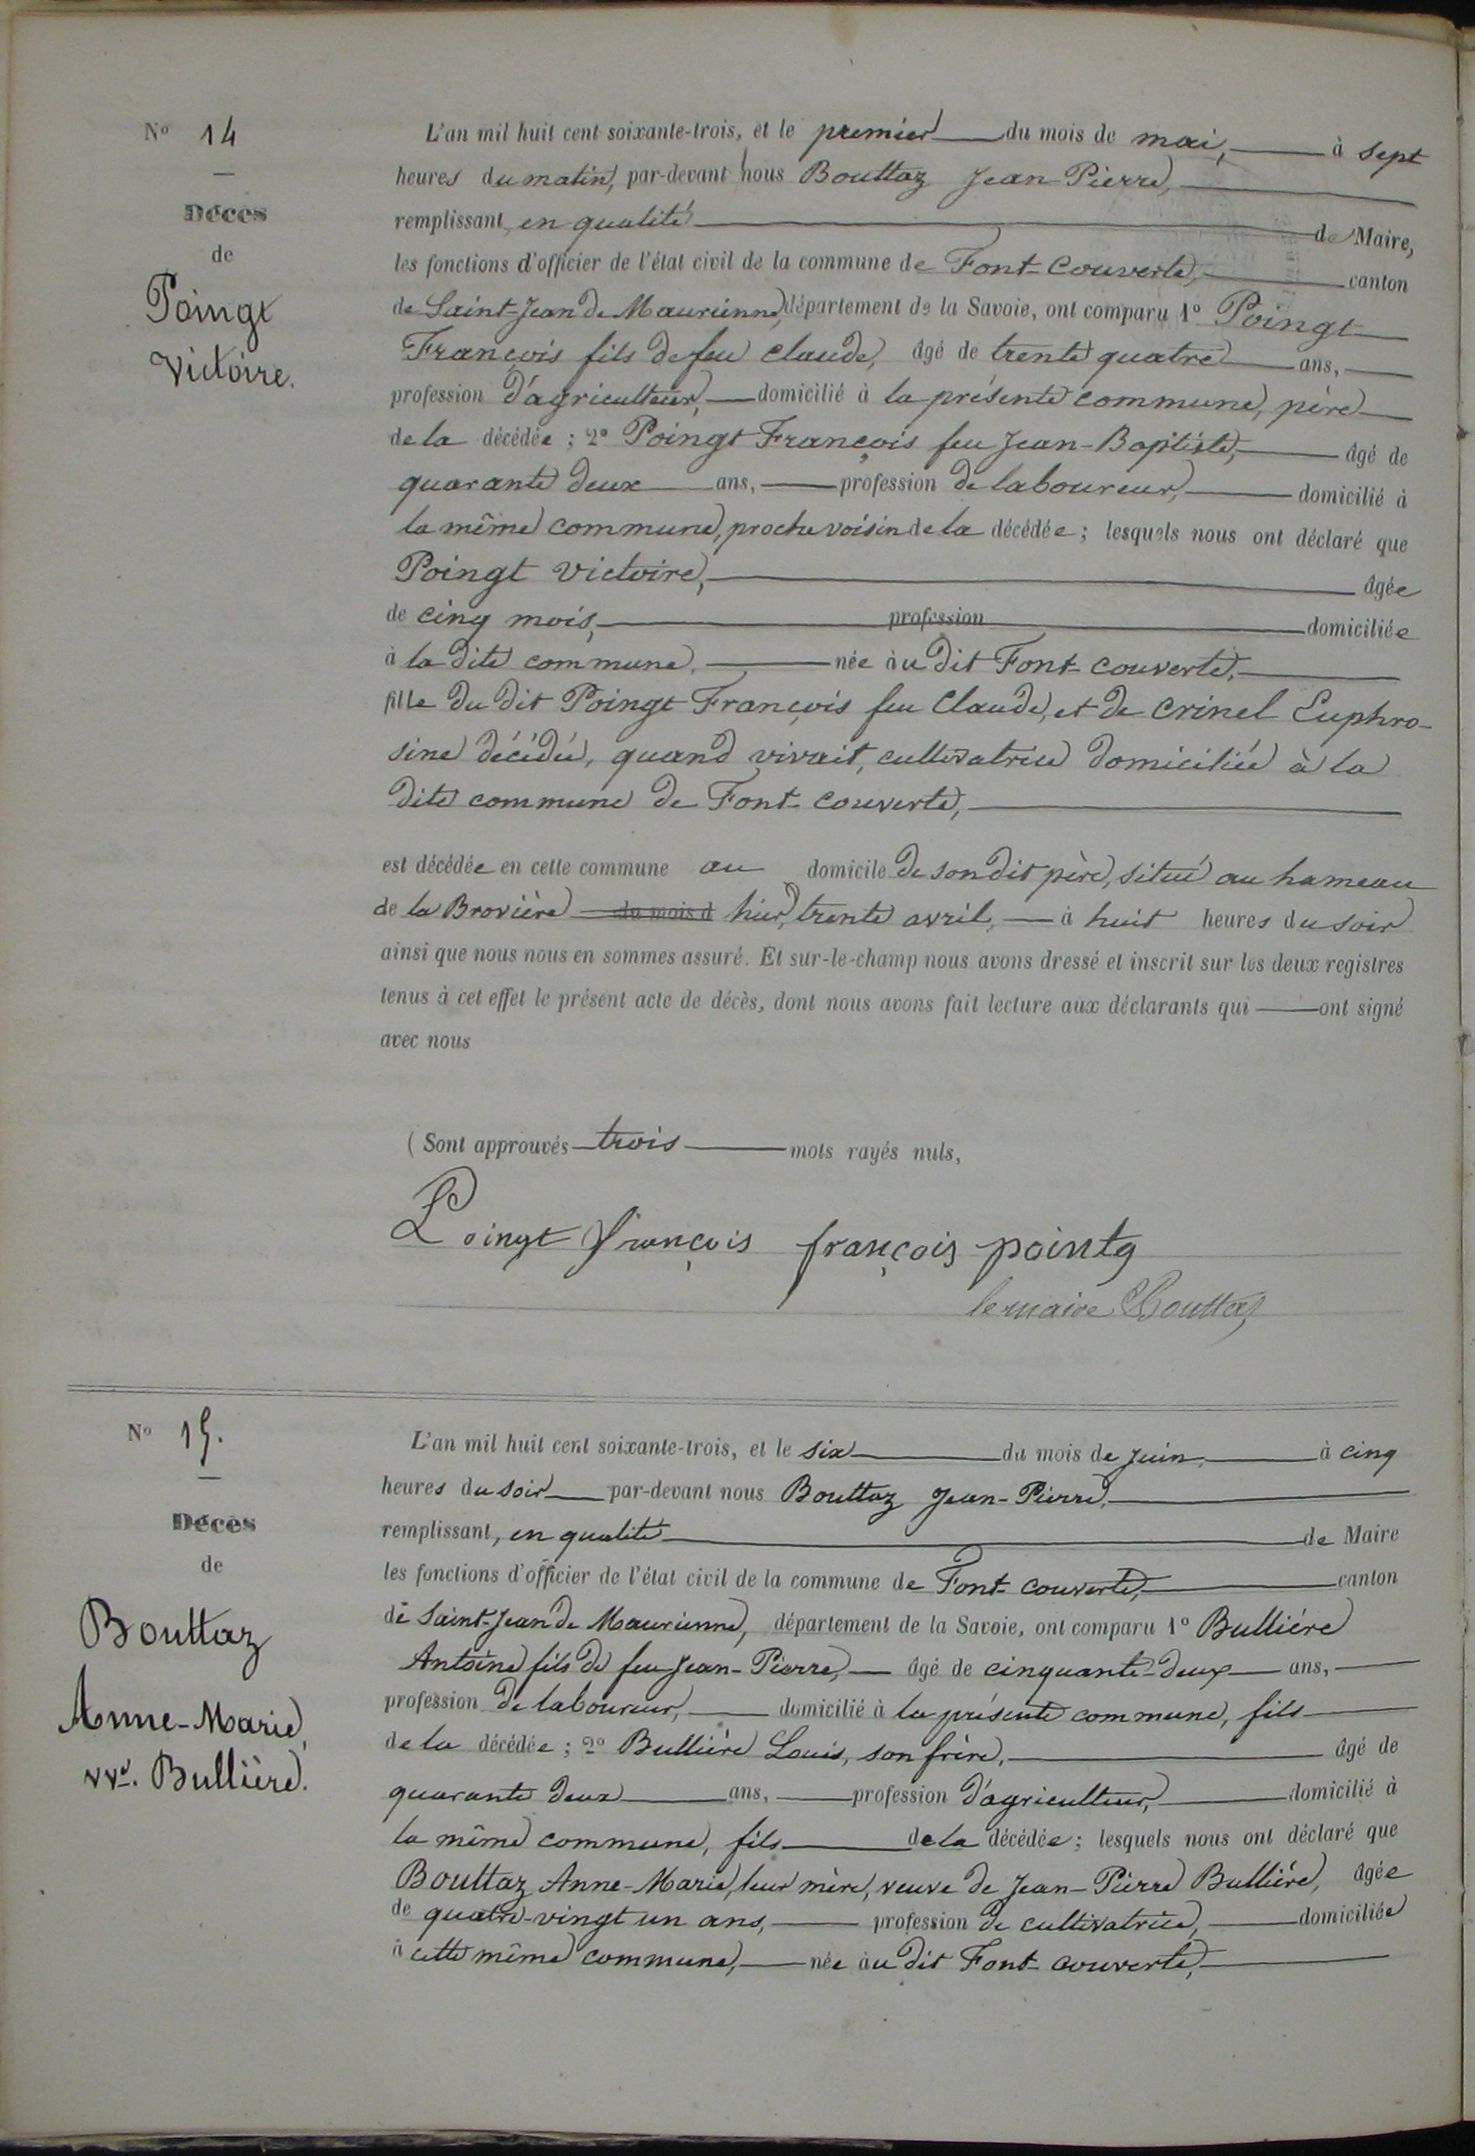 Nº 14
Décès
de
Poingt
Victoire.
L'an mil huit cent soixante-trois, et le premier du mois de mai, à sept
heures du matin, par-devant nous Bouttaz Jean Pierre,
remplissant, en qualité de Maire,
les fonctions d'officier de l'état civil de la commune de Font-Couverte, canton
de Saint-Jean de Maurienne, département de la Savoie, ont comparu 1º Poingt
François fils de feu Claude, âgé de trente quatre ans,
profession d'agriculteur, domicilié à la présente commune, père
de la décédée ; 2º Poingt François feu Jean-Baptiste, âgé de
quarante deux ans, profession de laboureur, domicilié à
la même commune, proche voisin de la décédée ; lesquels nous ont déclaré que
Poingt Victoire, âgée
de cinq mois, profession domiciliée
à la dite commune, née àu dit Font-couverte,
fille du dit Poingt François feu Claude, et de Crinel Euphro-
sine décédée, quand vivait, cultivatrice domiciliée à la
dite commune de Font-couverte,
est décédée en cette commune au domicile de son dit père, situé au hameau
de la Brovière du mois d hier, trente avril, à huit heures du soir
ainsi que nous nous en sommes assuré. Et sur-le-champ nous avons dressé et inscrit sur les deux registres
tenus à cet effet le présent acte de décès, dont nous avons fait lecture aux déclarants qui ont signé
avec nous
( Sont approuvés trois mots rayés nuls,
Poingt françois françois pointg
le maire Bouttaz
Nº 15.
Décès
de
Bouttaz
Anne-Marie,
vve. Bullière.
L'an mil huit cent soixante-trois, et le six du mois de juin, à cinq
heures du soir par-devant nous Bouttaz Jean-Pierre,
remplissant, en qualité de Maire
les fonctions d'officier de l'état civil de la commune de Font-couverte, canton
de Saint-Jean de Maurienne, département de la Savoie, ont comparu 1º Bullière
Antoine fils de feu Jean-Pierre, âgé de cinquante-deux ans,
profession de laboureur, domicilié à la présente commune, fils
de la décédée ; 2º Bullière Louis, son frère, âgé de
quarante deux ans, profession d'agriculteur, domicilié à
la même commune, fils de la décédée ; lesquels nous ont déclaré que
Bouttaz Anne-Marie, leur mère, veuve de Jean-Pierre Bullière, âgée
de quatre-vingt un ans, profession de cultivatrice, domiciliée
à cette même commune, née àu dit Font-couverte,